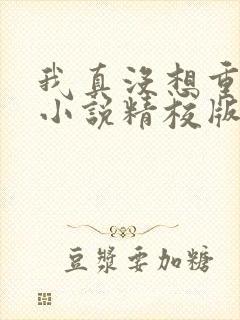 我真没想重
小说精校版
豆浆要加糖